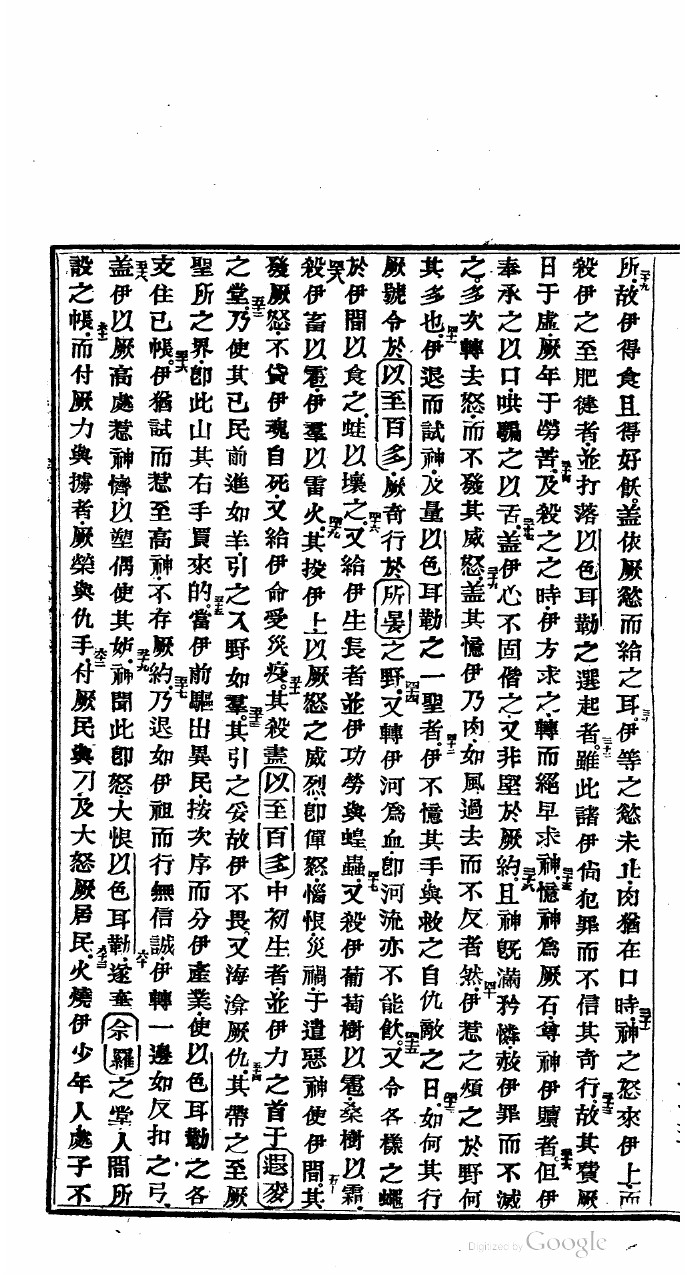 所故伊得食且得好飫蓋依厥慾而給之耳伊等之慾未止肉猶在口時神之怒來伊上而
殺伊之至肥健者並打落以色耳勒之選起者雖此諸伊尙犯罪而不信其奇行故其費厥
日于虛厥年于勞苦及殺之之時伊方求之轉而絕早求神憶神爲厥石尊神伊贖者但伊
奉承之以口哄騙之以舌蓋伊心不固偕之又非堅於厥約且神旣滿矜憐赦伊罪而不滅
之多次轉去怒而不發其威怒蓋其憶伊乃肉如風過去而不反者然伊惹之煩之於野何
其多也伊退而試神及量以色耳勒之一聖者伊不憶其手與救之自仇敵之日如何其行
厥號令於以至百多厥奇行於所晏之野又轉伊河爲血卽河流亦不能飮又令各樣之蠅
於伊間以食之蛙以壞之又給伊生長者並伊功勞與蝗蟲又殺伊葡萄樹以雹桑樹以霜
殺伊畜以雹伊羣以雷火其投伊上以厥怒之威烈卽憚怒惱恨災禍于遣惡神使伊間其
發厥怒不貸伊魂自死又給伊命受災疫其殺盡以至百多中初生者並伊力之首于遐麥
之堂乃使其己民前進如羊引之入野如羣其引之妥故伊不畏又海渰厥仇其帶之至厥
聖所之界卽此山其右手買來的當伊前驅出異民按次序而分伊產業使以色耳勒之各
支住己帳伊猶試而惹至高神不存厥約乃退如伊祖而行無信誠伊轉一邊如反扣之弓
蓋伊以厥高處惹神懠以塑偶使其妬神聞此卽怒大恨以色耳勒遂棄佘羅之堂人間所
設之帳而付厥力與擄者厥榮與仇手付厥民與刀及大怒厥居民火燒伊少年人處子不
Digitized by Google